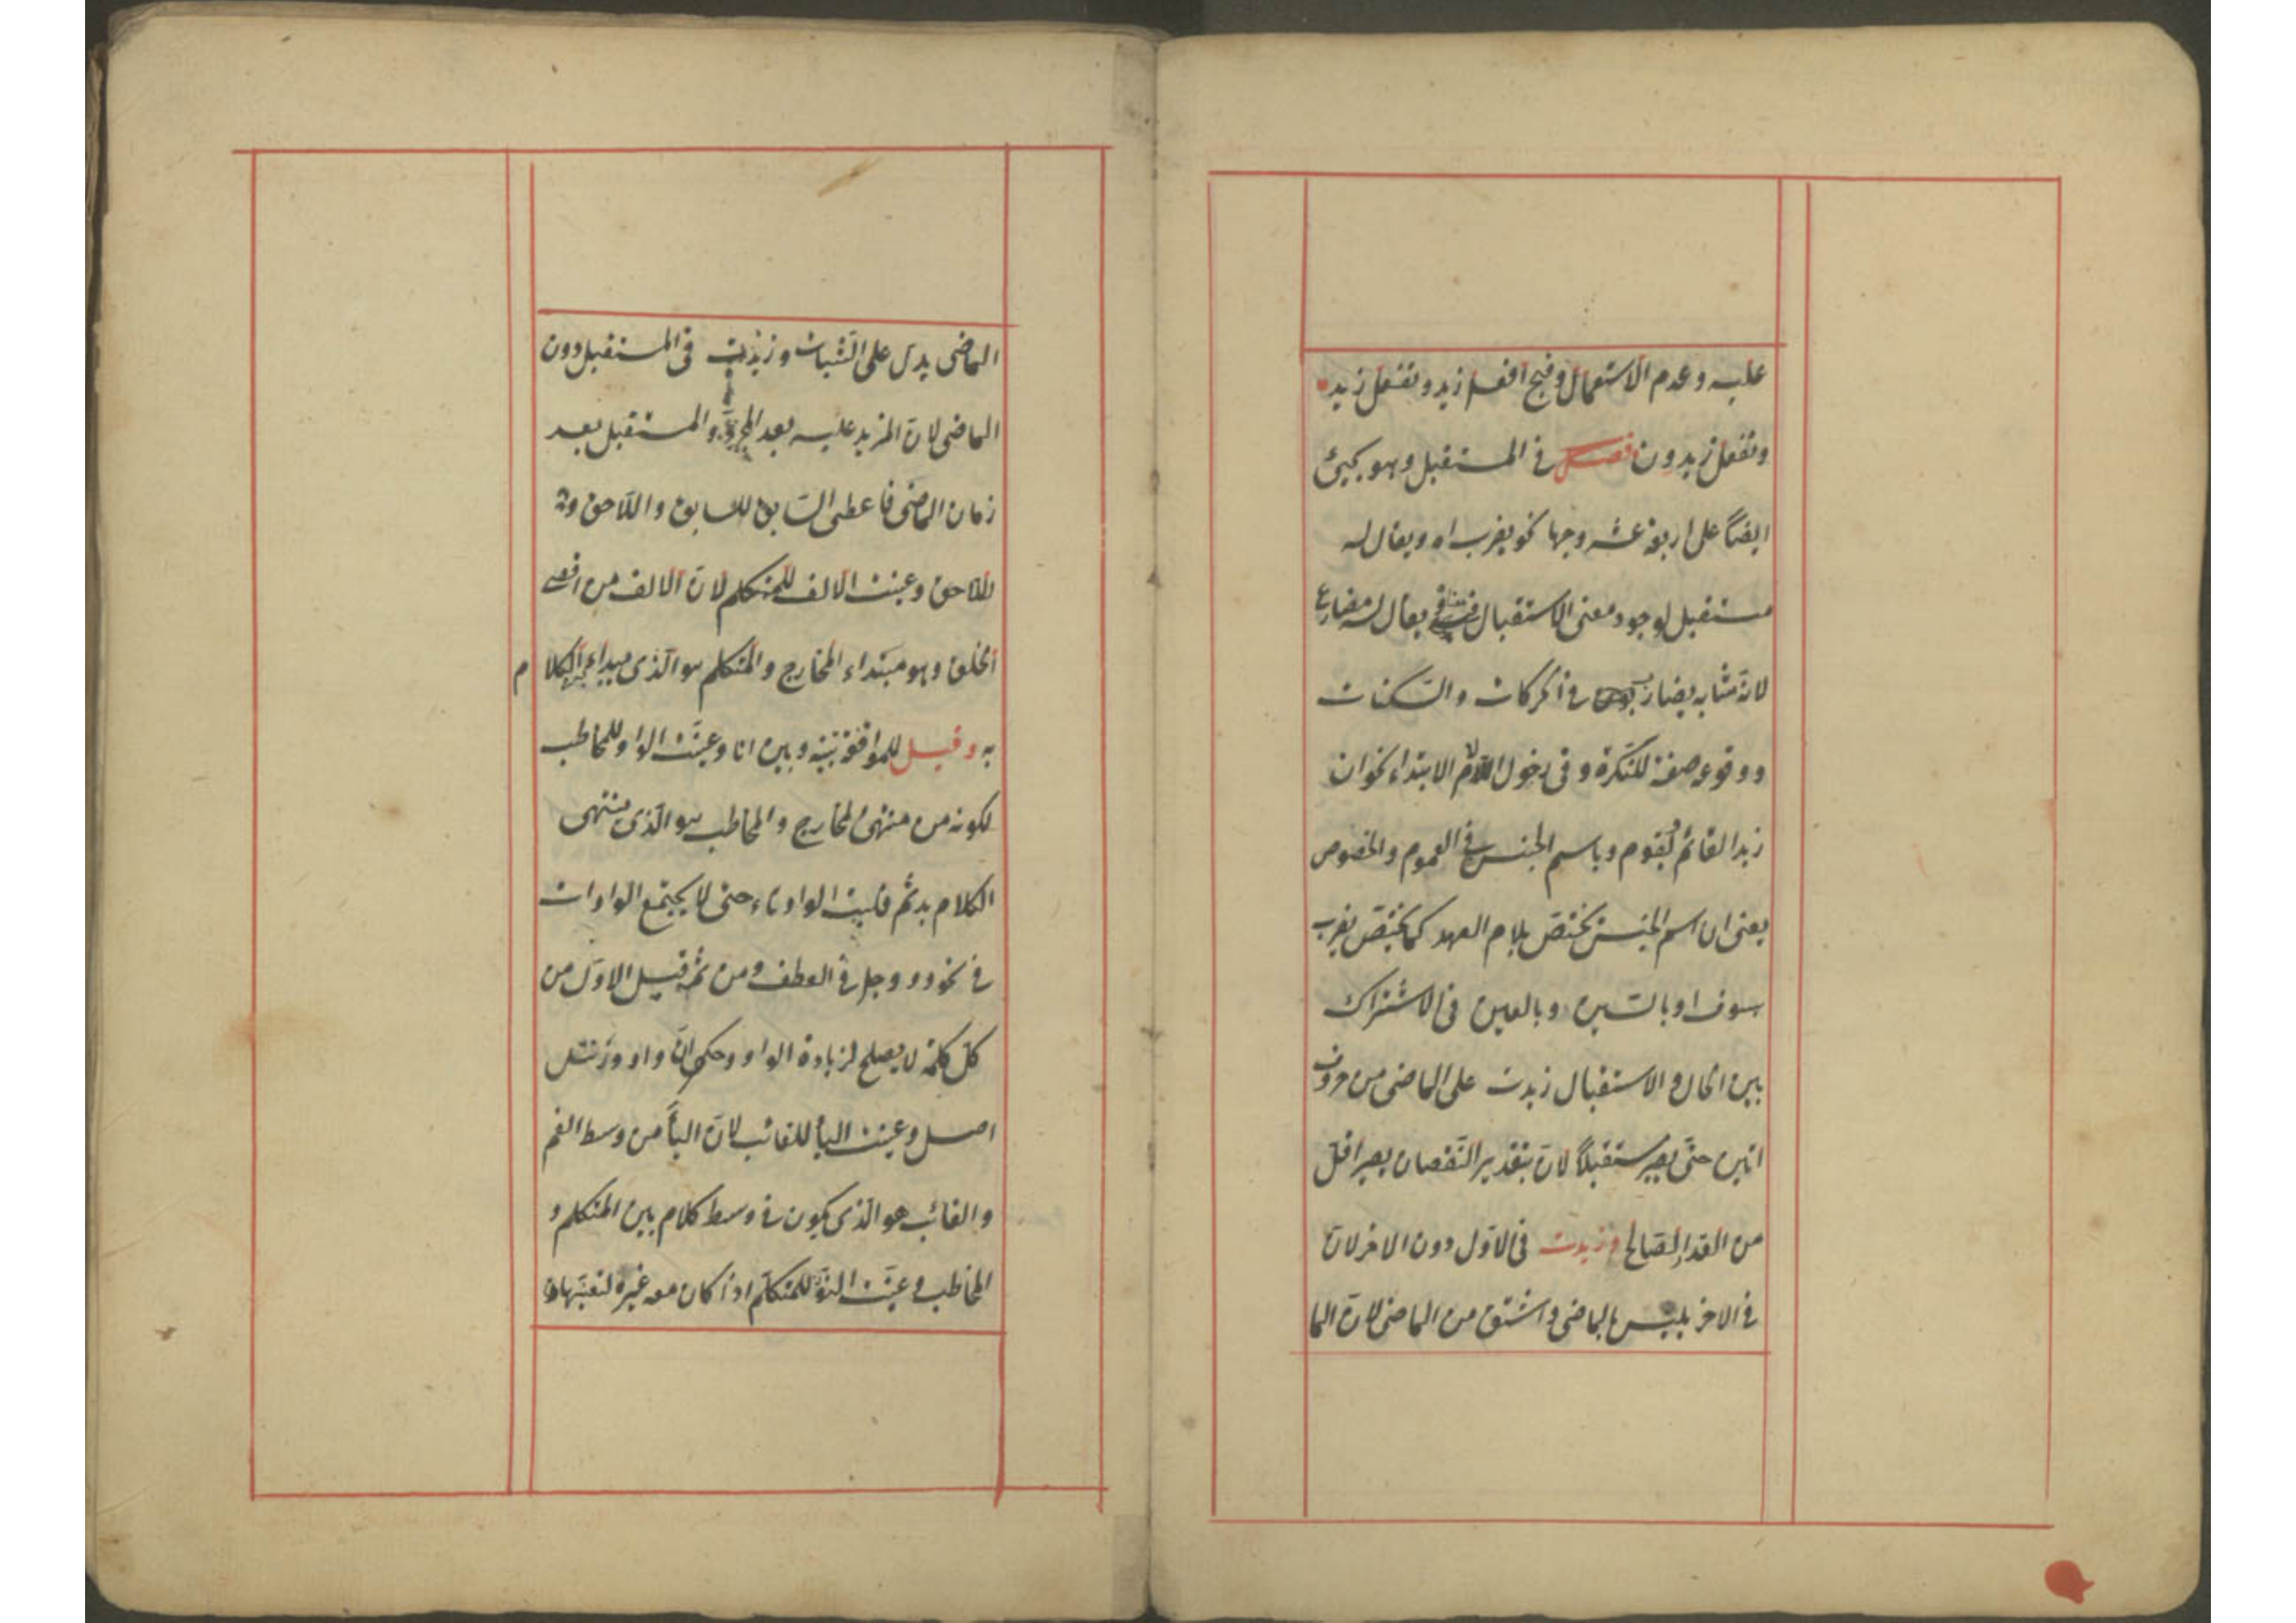 عليه وعدم الاستعمال وقبح افعل زيد وتفعل زيد
ونفعل زيدون فصل في المستقبل وهو يجيئ
ايضاً على اربعة عشر وجها نحو يضرب اه ويقال له
مستقبل لوجود معنى الاستقبال في يقال له مضارع
لانّه مشابه بضارب في الحركات والسّكنات
ووقوعه صفة للنّكرة وفى دخول اللام الابتداء نحو ان
زيدا لقائم ليقوم وباسم الجنس في العموم والخصوص
يعنى ان اسم الجنس يختصّ بلام العهد كما يختصّ يضرب
بسوف او بالسّين وبالعين فى الاشتراك
بين الحال والاستقبال زيدت على الماضى من حروف
اتين حتّى يصير مستقبلاً لانّ بتقدير النّقصان يصير اقلّ
من القدر الصّالح وزيدت فى الاوّل دون الاخر لانّ
فى الاخر يلتبس بالماضى واشتق من الماضى لانّ الما
الماضى يدلّ على الثّبات وزيدت فى المستقبل دون
الماضى لانّ المزيد عليه بعد المجرّد والمستقبل بعد
زمان الماضى فاعطى السّابق للسابق واللّاحق
للّاحق وعينت الالف للمتكلم لانّ الالف من اقصى
الحلق وهو مبتداء المخارج والمتكلم هو الّذى يبداء الكلام
به وقيل للموافقة بينه وبين انا وعيّنت الواو للمخاطب
لكونه من منتهى المخارج والمخاطب هو الّذى ينتهى
الكلام به ثمّ قلبت الواو تاء حتى لا يجتمع الواوات
فى نحو وووجل فى العطف ومن ثمّ قيل الاوّل من
كلّ كلمة لا يصلح لزيادة الواو وحكم انّ واو ورنتل
اصل وعينت اليأ للغائب لانّ اليأ من وسط الفم
والغائب هو الّذى يكون فى وسط كلام بين المتكلم و
المخاطب وعيّنت النّون للمتكلّم اذا كان معه غيره لتعيّنها